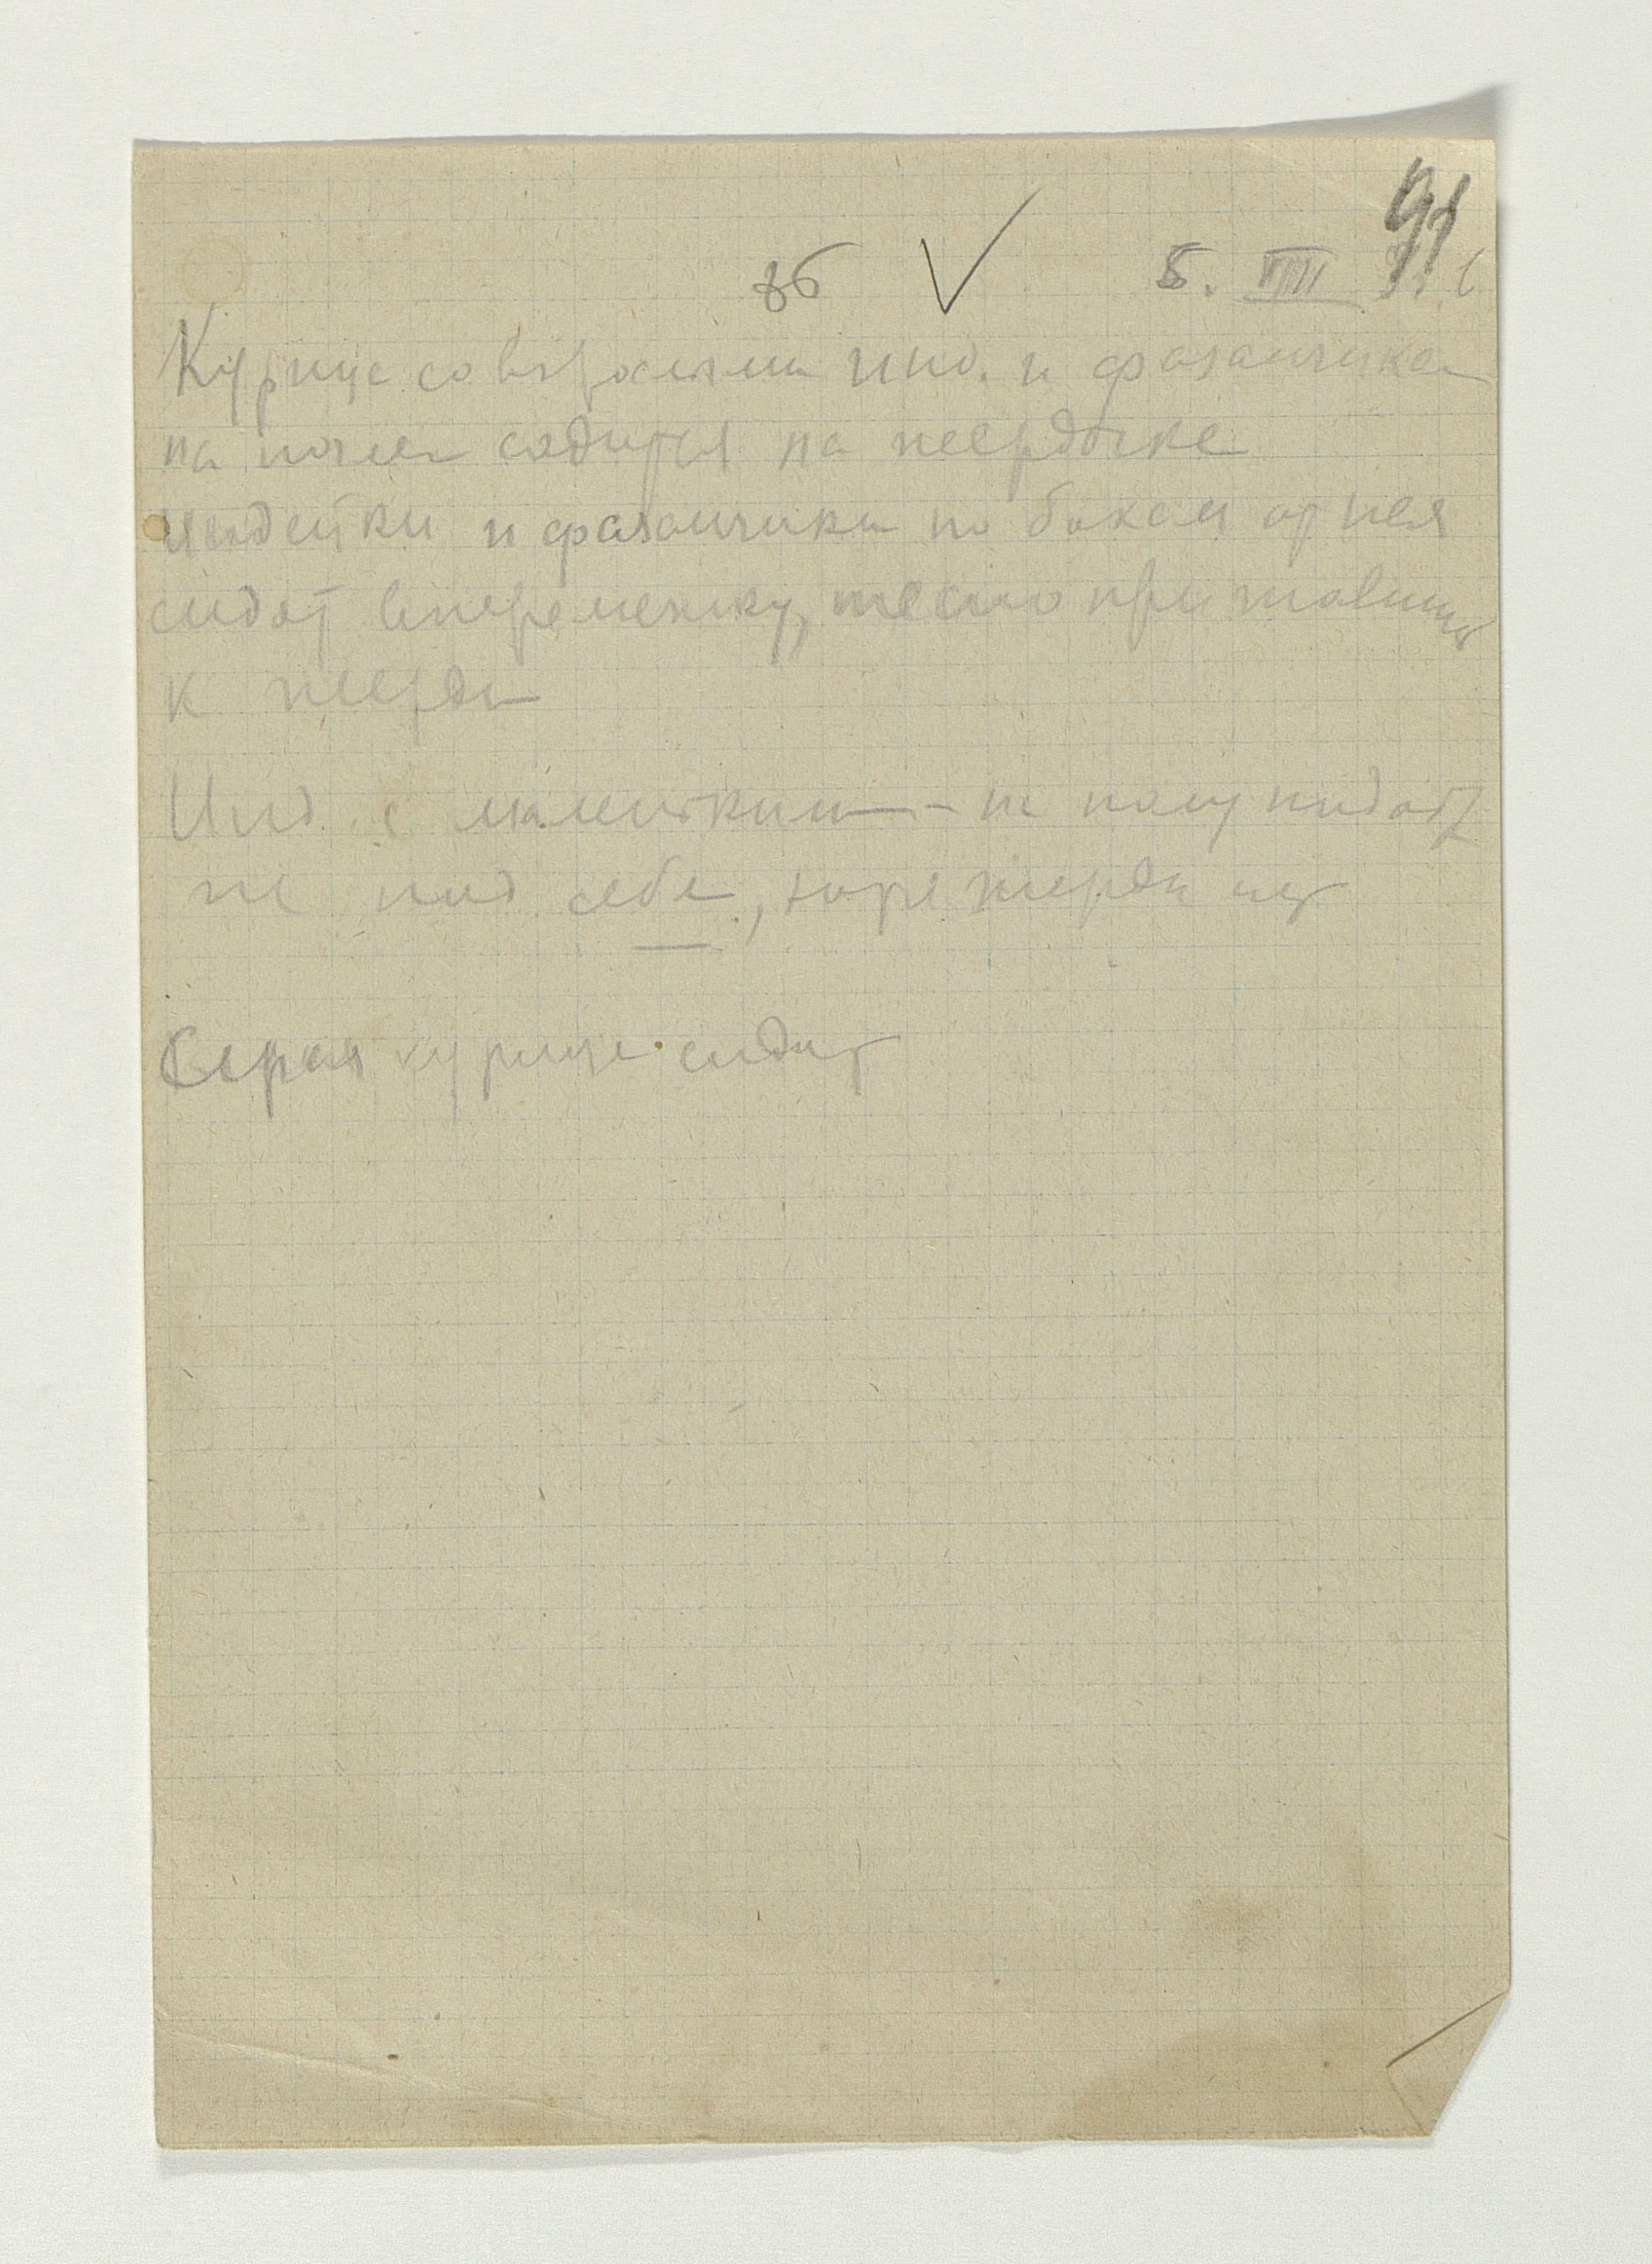 91
36 5. VIII
Курица со взрослыми инд. и фазанчиками
на ночлег садится на жердочке
индейки и фазанчики по бокам от нея
сидят вперемежку, тесно прижавшись
к жерди
Инд. с маленькими – на полу
не под себя, хотя жерди
Серая курица сидит